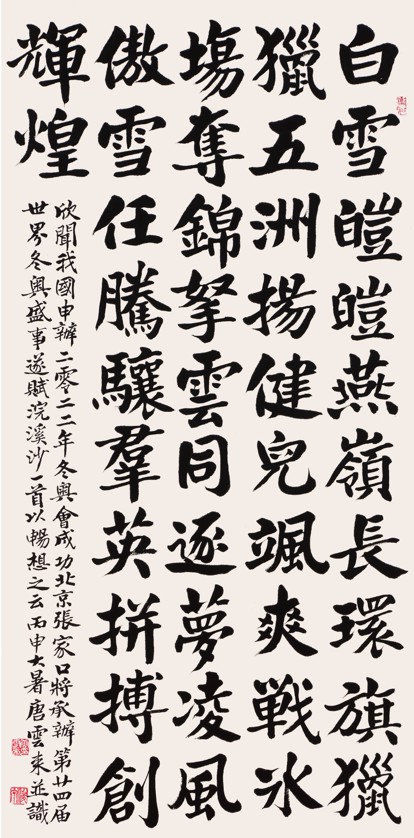 白雪皚皚燕嶺長環旗獵
獵五洲揚健兒颯爽戰冰
塲奪錦拏雲同逐夢凌風
傲雪任騰驤羣英拼搏創
輝煌
欣聞我國申辦二零二二年冬奧會成功北京張家口將承辦第廿四届
世界冬奧盛事遂賦浣溪沙一首以暢想之云丙申大暑唐雲來並識